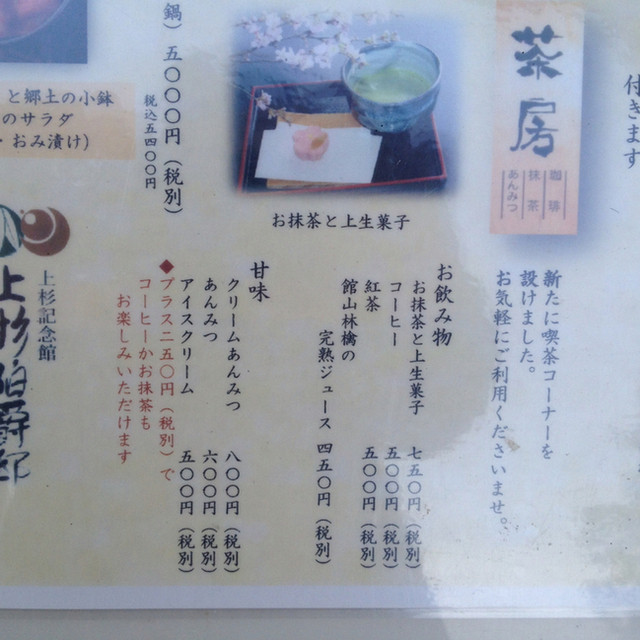 付きます
茶房
珈琲
抹茶
あんみつ
新たに喫茶コーナーを
設けました。
お気軽にご利用くださいませ。
お抹茶と上生菓子
お飲み物
お抹茶と上生菓子 七五〇円(税別)
コーヒー 五〇〇円(税別)
紅茶 五〇〇円(税別)
館山林檎の
完熟ジュース 四五〇円(税別)
甘味
クリームあんみつ 八〇〇円(税別)
あんみつ 六〇〇円(税別)
アイスクリーム 五〇〇円(税別)
◆プラス二五〇円(税別)で
コーヒーかお抹茶も
お楽しみいただけます
鍋) 五〇〇〇円(税別)
税込五四〇〇円
と郷土の小鉢
のサラダ
・おみ漬け)
上杉記念館
上杉伯爵邸